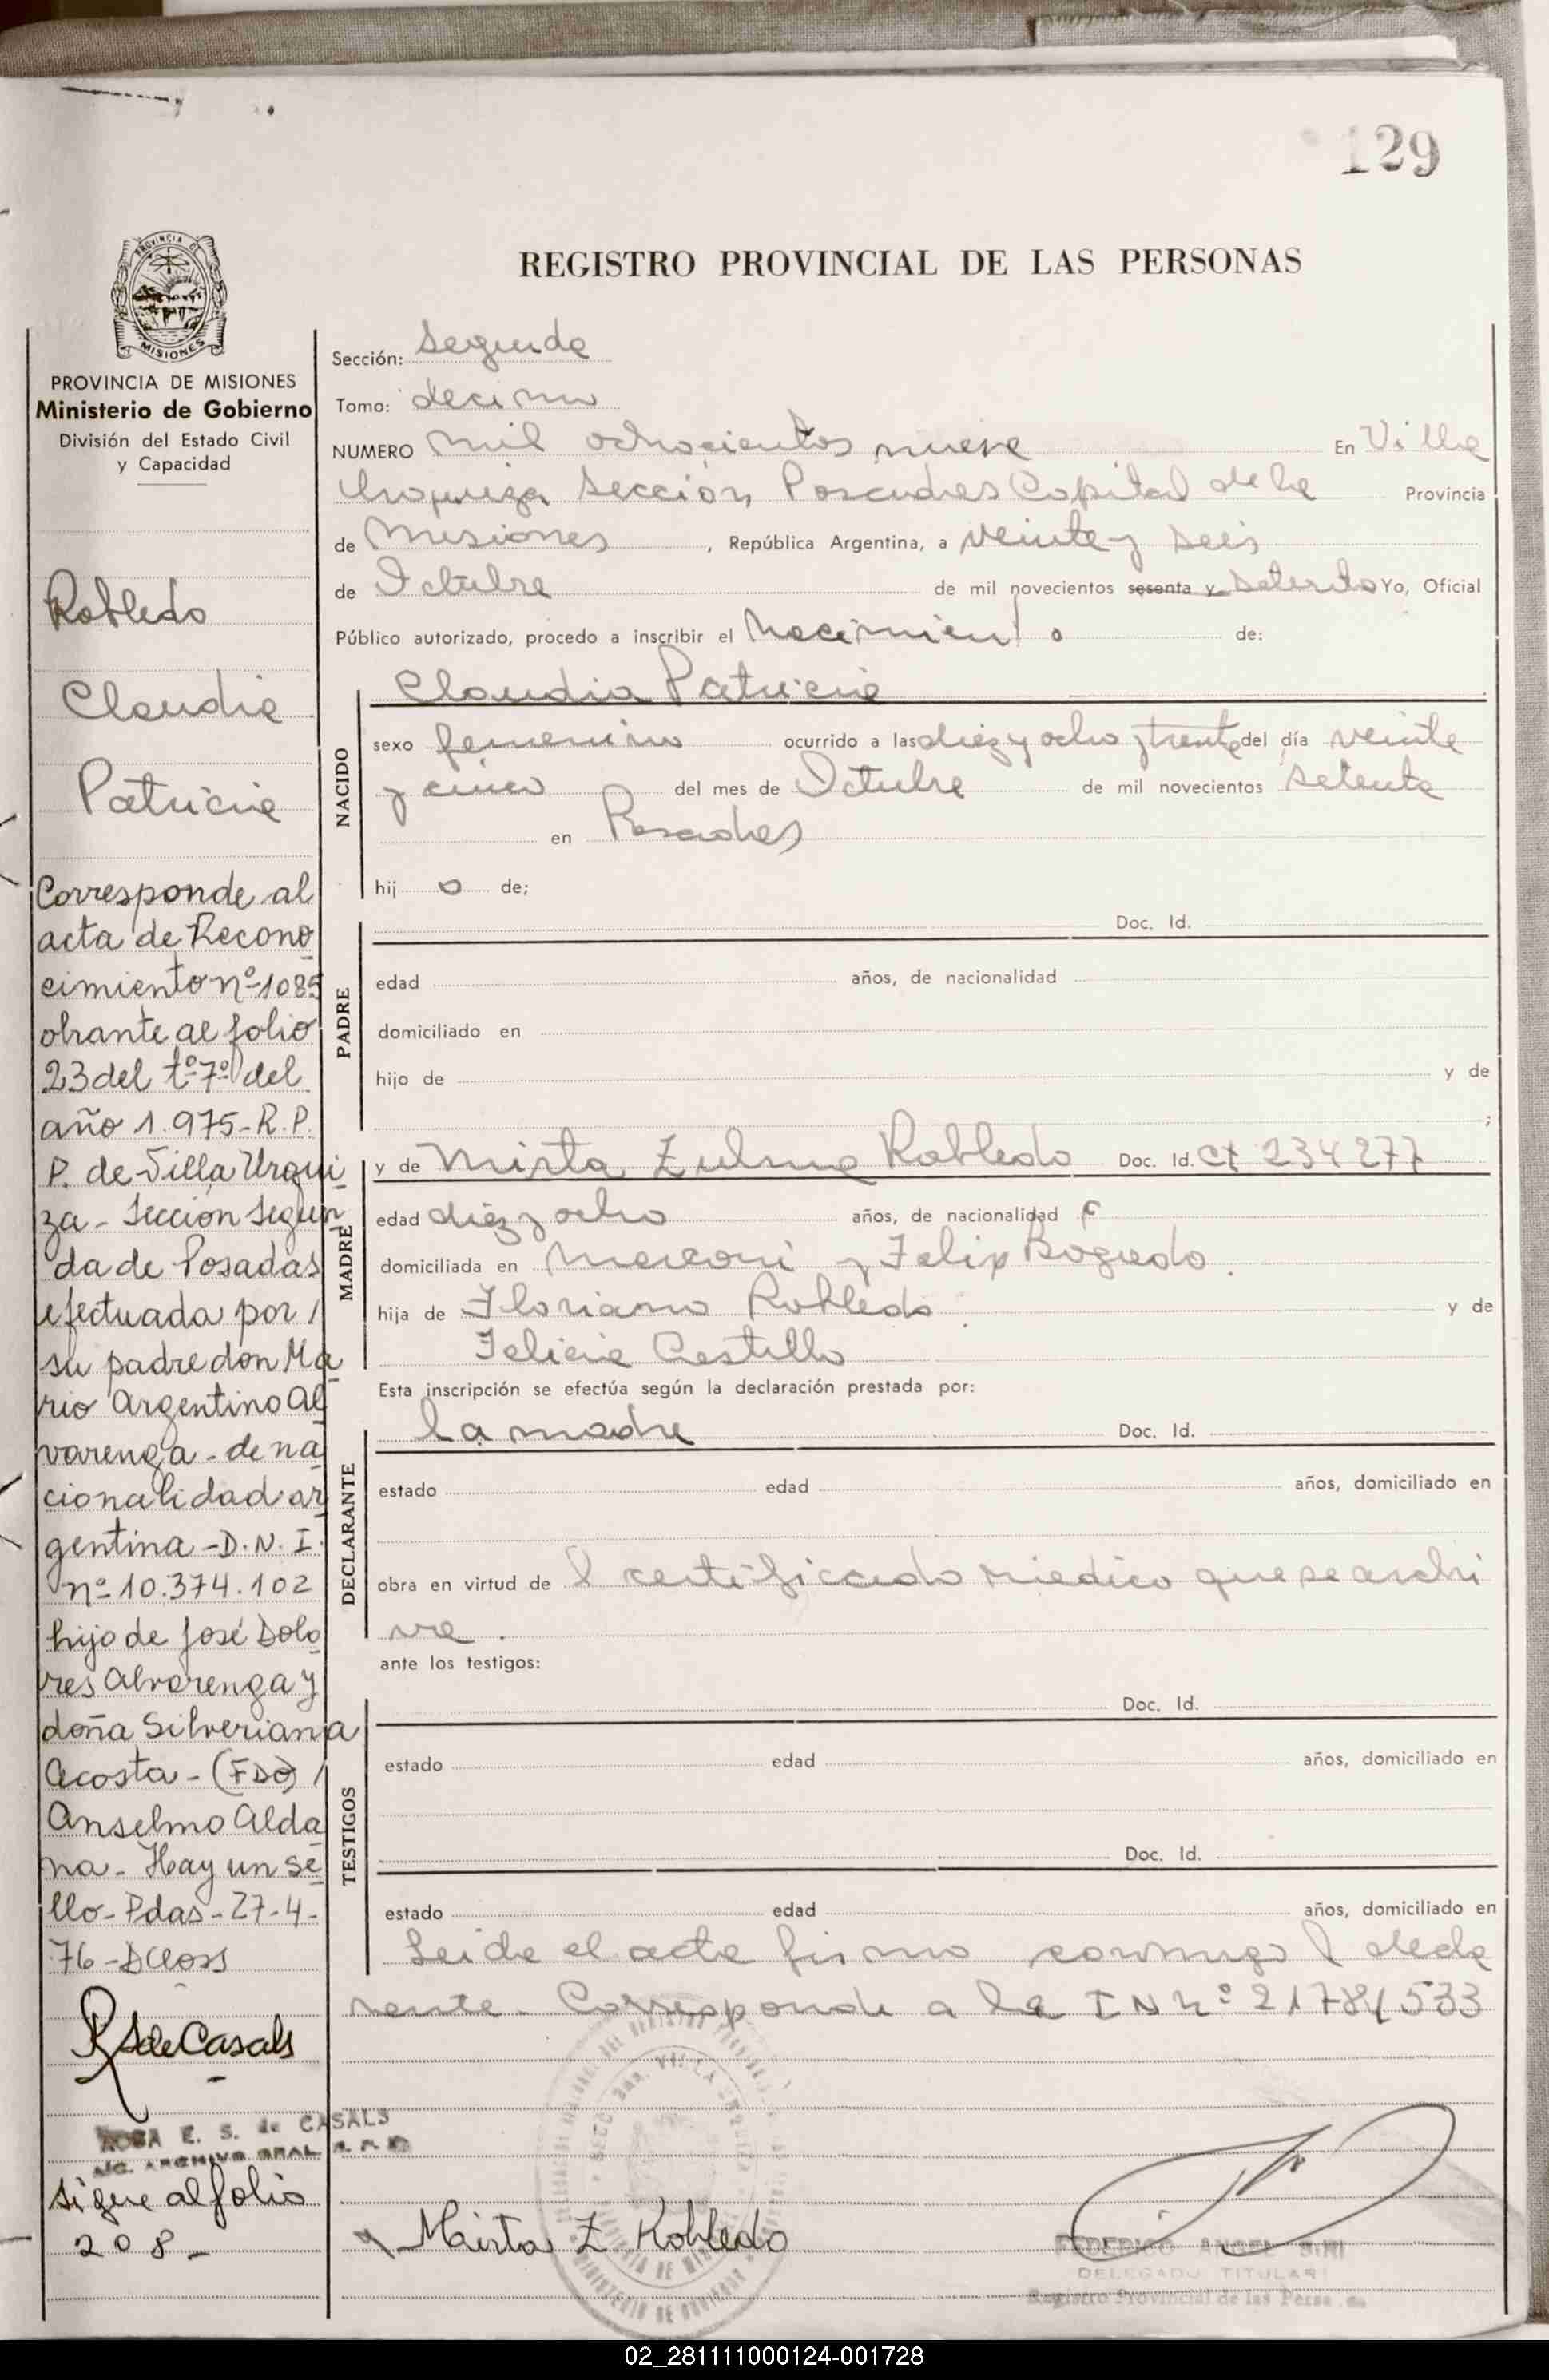 129
REGISTRO PROVINCIAL DE LAS PERSONAS
PROVINCIA DE MISIONES
Ministerio de Gobierno
División del Estado Civil
y Capacidad
Robledo
Claudia
Patricia
Corresponde al
acta de Recono
cimiento nº 1085
obrante al folio
23 del tº 7º del
año 1.975-R.P.
P. de Villa Urqui
za - Sección Segun
da de Posadas
efectuada por /
su padre don Ma
rio Argentino Al
varenga - de na
cionalidad ar
gentina - D.N.I.
nº 10.374.102
hijo de José Dolo
res Alvarenga y
doña Silveriana
Acosta - (FDO) /
Anselmo Alda
na - Hay un se
llo - Pdas - 27-4-
76 -
RSdeCasals
ROSA E. S. de CASALS
A/C. ARCHIVO GRAL. R. P. P.
sigue al folio
208 -
Sección: Segunda
Tomo: decimo
NUMERO mil ochocientos nueve En Villa
Urquiza Sección Posadas Capital de la Provincia
de Misiones , República Argentina, a veinte y seis
de Octubre de mil novecientos sesenta y setenta Yo, Oficial
Público autorizado, procedo a inscribir el Nacimiento de:
NACIDO
Claudia Patricia
sexo femenino ocurrido a las diez y ocho y treinta del día veinte
y cinco del mes de Octubre de mil novecientos setenta
en Posadas
hij a de;
PADRE
Doc. Id.
edad años, de nacionalidad
domiciliado en
hijo de y de
;
MADRE
y de Mirta Zulma Robledo Doc. Id. CI 234277
edad diez y ocho años, de nacionalidad
domiciliada en Marconi y Felix Bogado.
hija de Floriano Robledo y de
Felicia Castillo
Esta inscripción se efectúa según la declaración prestada por:
DECLARANTE
la madre Doc. Id.
estado edad años, domiciliado en
obra en virtud de l certificado medico que se archi
va.
ante los testigos:
TESTIGOS
Doc. Id.
estado edad años, domiciliado en
Doc. Id.
estado edad años, domiciliado en
Leida el acta firma conmigo l decla
rante. Corresponde a la IN nº 21784533
Mirta Z Robledo
FEDERICO ANGEL SIRI
DELEGADO TITULAR
Registro Provincial de las Perso
02_281111000124-001728